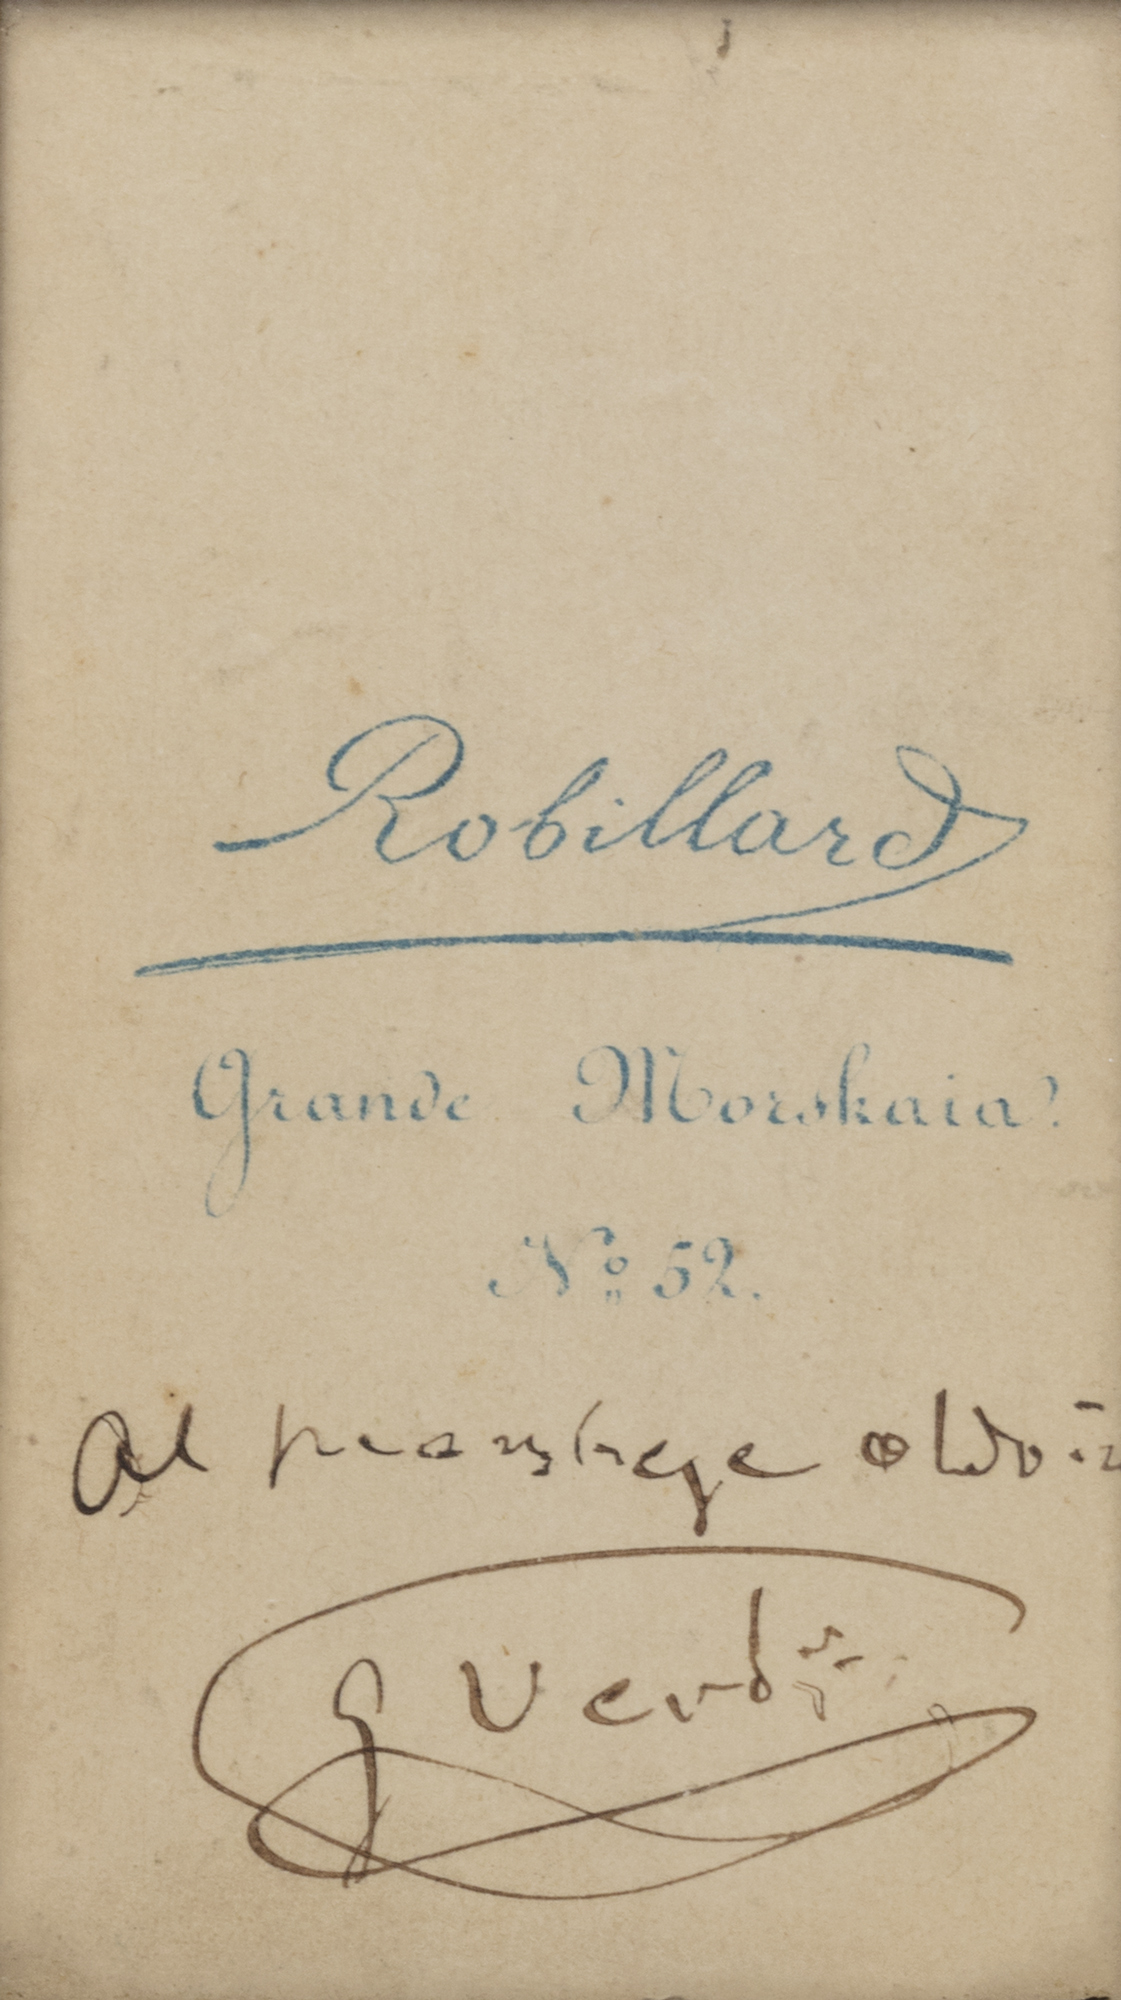 Robillard
Grande Morskaia.
No 52.
Al
G Verdi